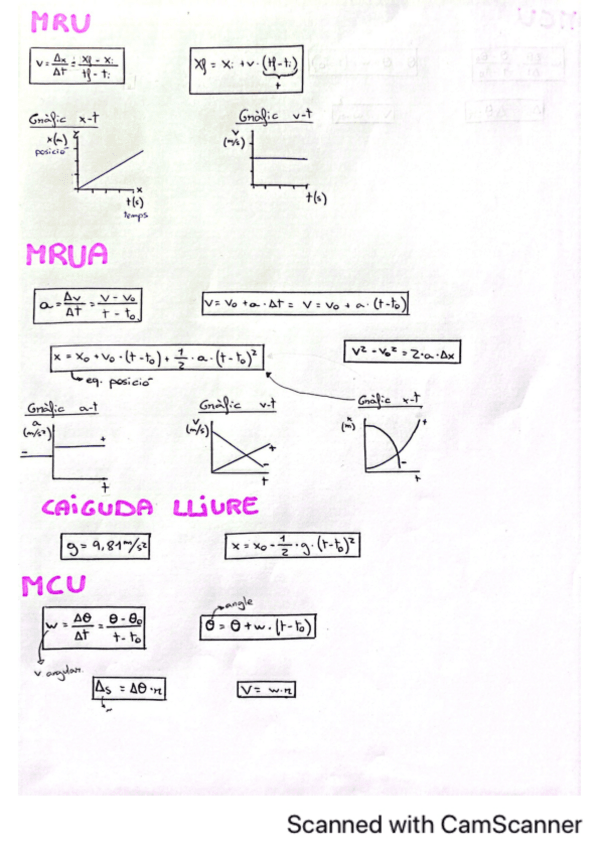 MRU
v = Δx/Δt = xf - xi/tf - ti
xf = xi + v · (tf - ti)
t
Gràfic x-t
x(m)
posició
x
t(s)
temps
Gràfic v-t
v
(m/s)
t(s)
MRUA
a = Δv/Δt = v - v₀/t - t₀
v = v₀ + a · Δt = v = v₀ + a · (t - t₀)
x = x₀ + v₀ · (t - t₀) + 1/2 · a · (t - t₀)²
eq. posició
v² - v₀² = 2 · a · Δx
Gràfic a-t
a
(m/s²)
+
-
t
Gràfic v-t
v
(m/s)
+
-
t
Gràfic x-t
x
(m)
+
-
t
CAiGUDA LLiURE
g = 9,81 m/s²
x = x₀ - 1/2 · g · (t - t₀)²
MCU
w = Δθ/Δt = θ - θ₀/t - t₀
v angular.
angle
θ = θ + w · (t - t₀)
Δs = Δθ · r
v = w · r
Scanned with CamScanner